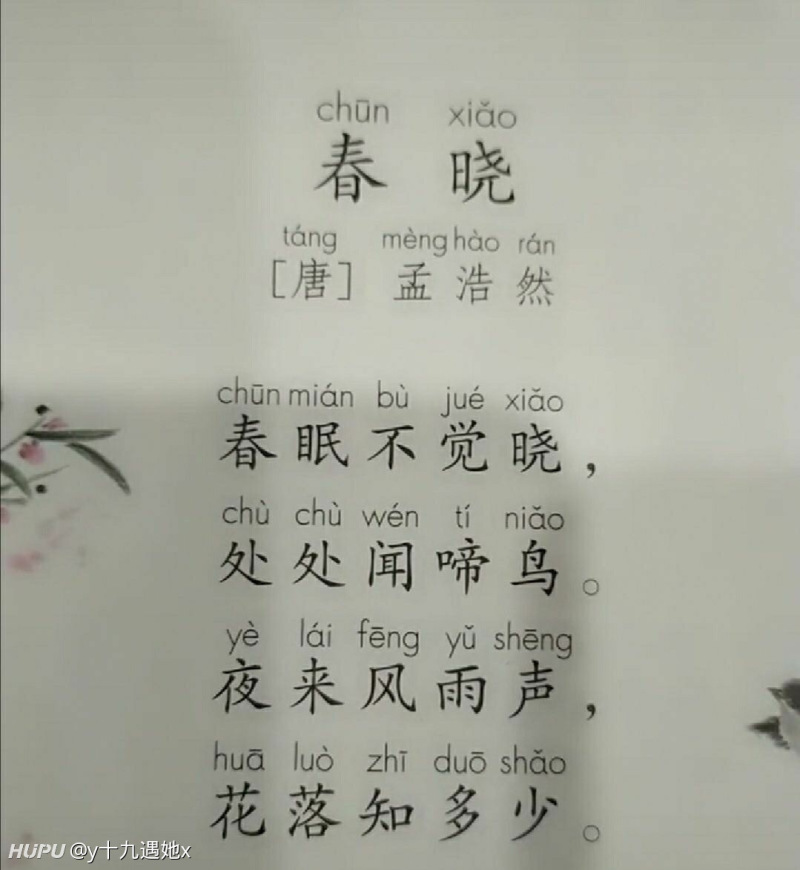 chūn xiǎo
春 晓
táng mèng hào rán
[唐] 孟 浩 然
chūn mián bù jué xiǎo
春 眠 不 觉 晓，
chù chù wén tí niǎo
处 处 闻 啼 鸟。
yè lái fēng yǔ shēng
夜 来 风 雨 声，
huā luò zhī duō shǎo
花 落 知 多 少。
HUPU @y十九遇她x